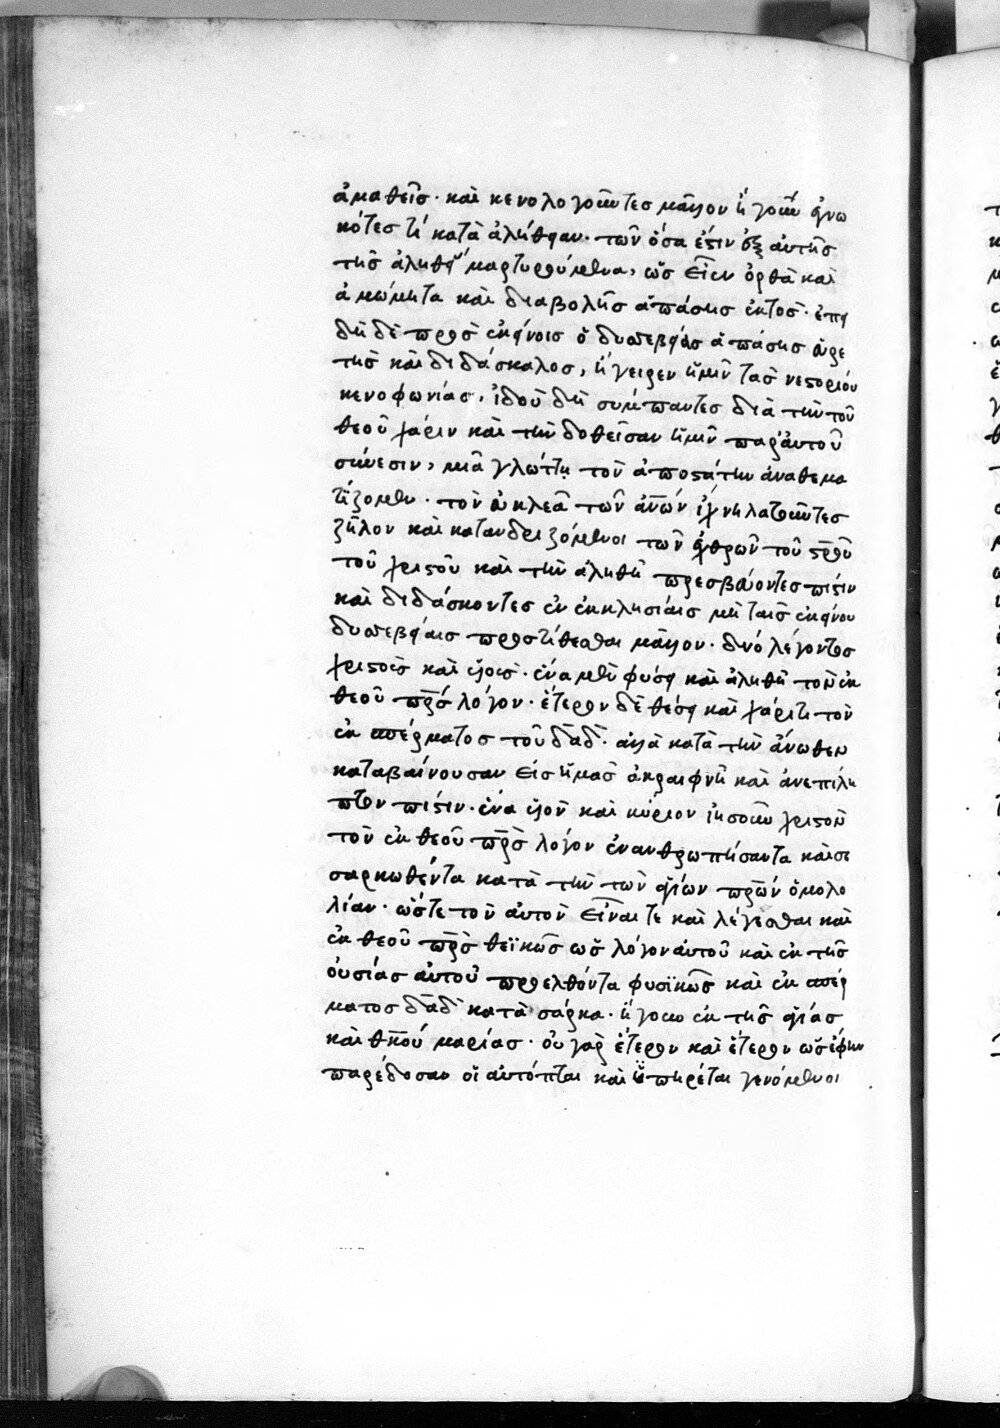 ἀμαθεῖς· καὶ κενολογοῦντες μᾶλλον ἤγουν ἐγνω
κότες τί κατὰ ἀλήθειαν· τῶν ὅσα ἐστὶν ἐξ αὐτῆς
τῆς ἀληθεί μαρτυρούμενα, ὡς εἶεν ὀρθὰ καὶ
ἀμώμητα καὶ διαβολῆς ἁπάσης ἐκτός· ἐπει
δὴ δὲ πρὸς ἐκείνοις ὁ δυσσεβείας ἁπάσης εὑρε
τὴς καὶ διδάσκαλος, ἤγειρεν ἡμῖν τὰς νεστορίου
κενοφωνίας, ἰδοὺ δὴ σύμπαντες διὰ τὴν τοῦ
θεοῦ χάριν καὶ τὴν δοθεῖσαν ἡμῖν παρ' αὐτοῦ
σύνεσιν, μιᾷ γλώττῃ τὸν ἀποστάτην ἀναθεμα
τίζομεν· τὸν εὐκλεᾶ τῶν ἀνῶν ἰχνηλατοῦντες
ζῆλον καὶ κατανδριζόμενοι τῶν ἐχθρῶν τοῦ στροῦ
τοῦ χριστοῦ καὶ τὴν ἀληθῆ πρεσβεύοντες πίστιν
καὶ διδάσκοντες ἐν ἐκκλησίαις μὴ ταῖς ἐκείνου
δυσσεβείαις προστίθεσθαι μᾶλλον· δύο λέγοντος
χριστοὺς καὶ υἱούς· ἕνα μὲν φύσει καὶ ἀληθῆ τὸν ἐκ
θεοῦ πρς λόγον· ἕτερον δὲ θέσει καὶ χάριτι τὸν
ἐκ σπέρματος τοῦ δαδ· ἀλλὰ κατὰ τὴν ἄνωθεν
καταβαίνουσαν εἰς ἡμᾶς ἀκραιφνῆ καὶ ἀνεπίλη
πτον πίστιν· ἕνα υἱὸν καὶ κύριον ἰησοῦν χριστὸν
τὸν ἐκ θεοῦ πρς λόγον ἐνανθρωπήσαντα καὶ σε
σαρκωθέντα κατὰ τὴν τῶν ἁγίων πρῶν ὁμολο
λίαν· ὥστε τὸν αὐτὸν εἶναί τε καὶ λέγεσθαι καὶ
ἐκ θεοῦ πρς θεϊκῶς ὡς λόγον αὐτοῦ καὶ ἐκ τῆς
οὐσίας αὐτοῦ προελθόντα φυσϊκῶς καὶ ἐκ σπέρ
ματος δαδ κατὰ σάρκα· ἤγουν ἐκ τῆς ἁγίας
καὶ θκου μαρίας· οὐ γὰρ ἕτερον καὶ ἕτερον ὡς ἔφην
παρέδοσαν οἱ αὐτόπται καὶ ὑπηρέται γενόμενοι